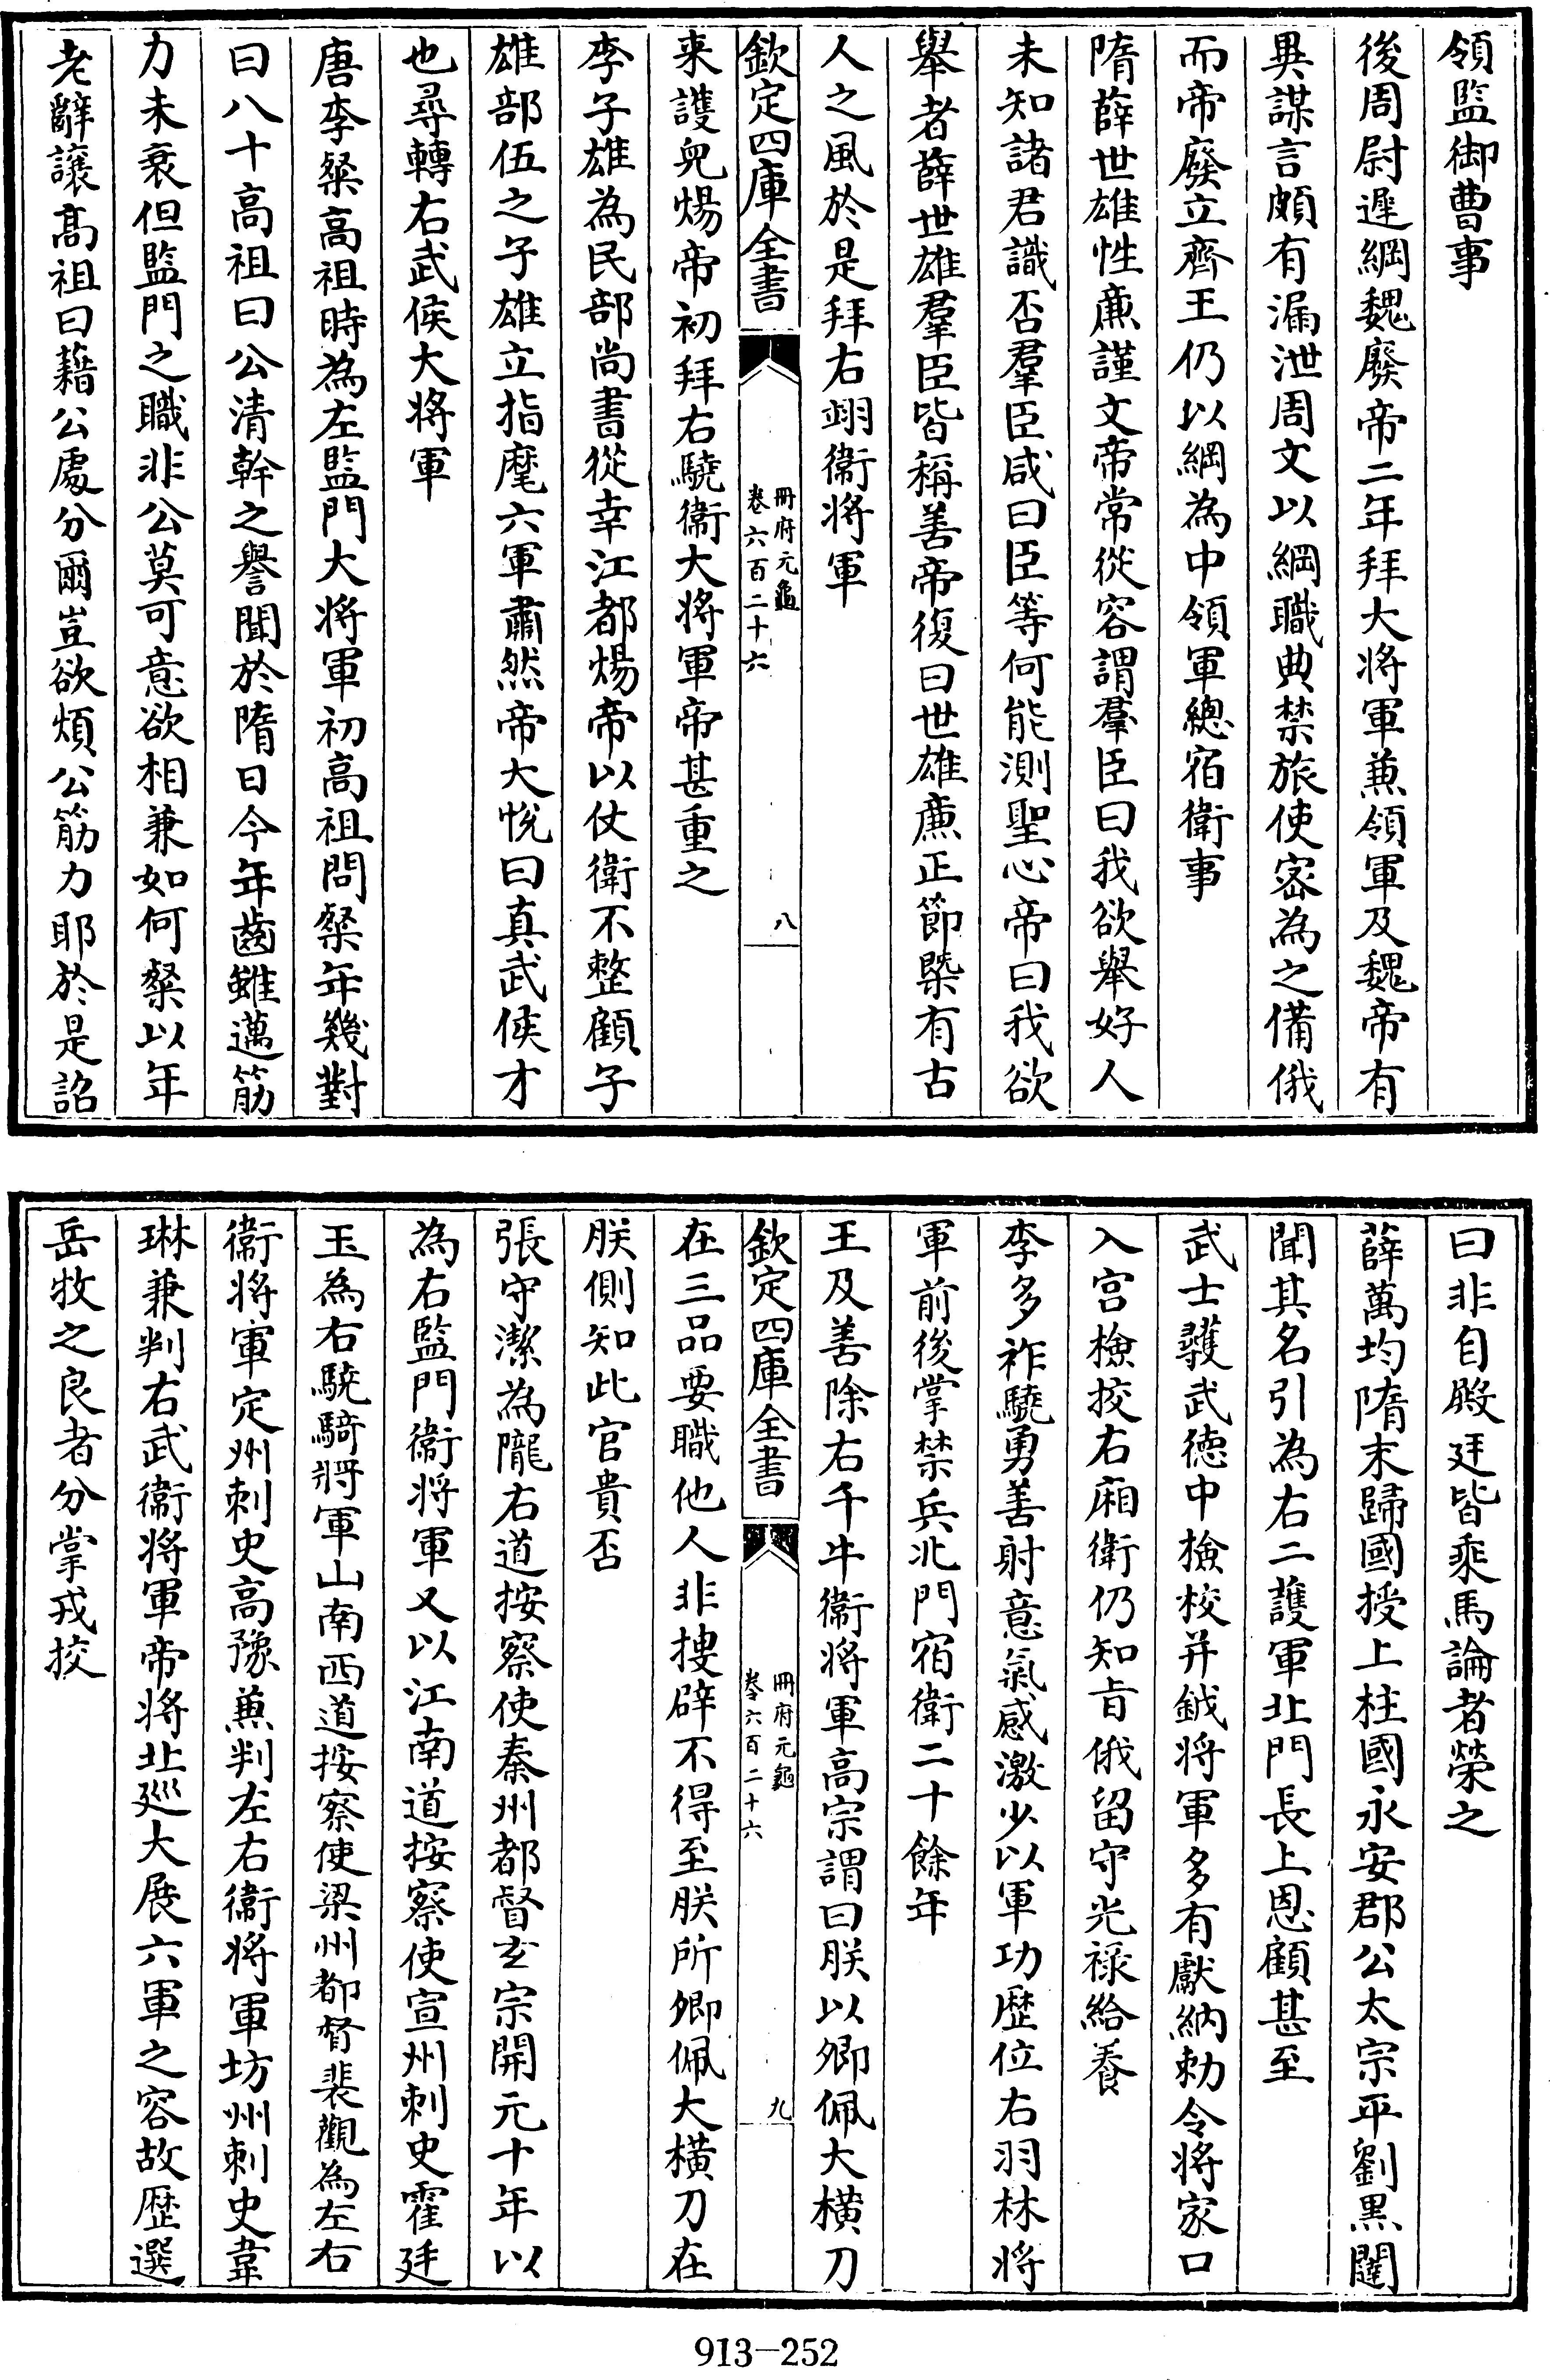 領監御曹事
後周尉遲綱魏廢帝二年拜大将軍兼領軍及魏帝有
異謀言頗有漏泄周文以綱職典禁旅使宻為之備俄
而帝廢立齊王仍以綱為中領軍總宿衛事
隋薛世雄性㢘謹文帝常從容謂羣臣曰我欲舉好人
未知諸君識否羣臣咸曰臣等何能測聖心帝曰我欲
舉者薛世雄羣臣皆稱善帝復曰世雄㢘正節槩有古
人之風於是拜右翊衞将軍
欽定四庫全書
冊府元龜
卷六百二十六
八
来護兒煬帝初拜右驍衞大将軍帝甚重之
李子雄為民部尚書從幸江都煬帝以仗衛不整顧子
雄部伍之子雄立指麾六軍肅然帝大悅曰真武侯才
也尋轉右武侯大将軍
唐李粲高祖時為左監門大将軍初高祖問粲年幾對
曰八十高祖曰公清幹之譽聞於隋日今年齒雖邁筋
力未衰但監門之職非公莫可意欲相兼如何粲以年
老辭讓髙祖曰藉公處分爾豈欲煩公筋力耶於是詔
曰非自殿廷皆乘馬論者榮之
薛萬均隋末歸國授上柱國永安郡公太宗平劉黒闥
聞其名引為右二護軍北門長上恩顧甚至
武士彠武徳中檢校并鉞将軍多有獻納勅令将家口
入宫檢挍右廂衛仍知㫖俄留守光禄給養
李多祚驍勇善射意氣感激少以軍功歴位右羽林将
軍前後掌禁兵北門宿衛二十餘年
王及善除右千牛衞将軍高宗謂曰朕以卿佩大横刀
欽定四庫全書
冊府元龜
卷六百二十六
九
在三品要職他人非捜辟不得至朕所卿佩大横刀在
朕側知此官貴否
張守潔為隴右道按察使秦州都督𤣥宗開元十年以
為右監門衞将軍又以江南道按察使宣州刺史霍廷
玉為右驍騎將軍山南西道按察使梁州都督裴觀為左右
衞将軍定州刺史高豫兼判左右衞将軍坊州刺史韋
琳兼判右武衞将軍帝将北廵大展六軍之容故歴選
岳牧之良者分掌戎挍
913-252